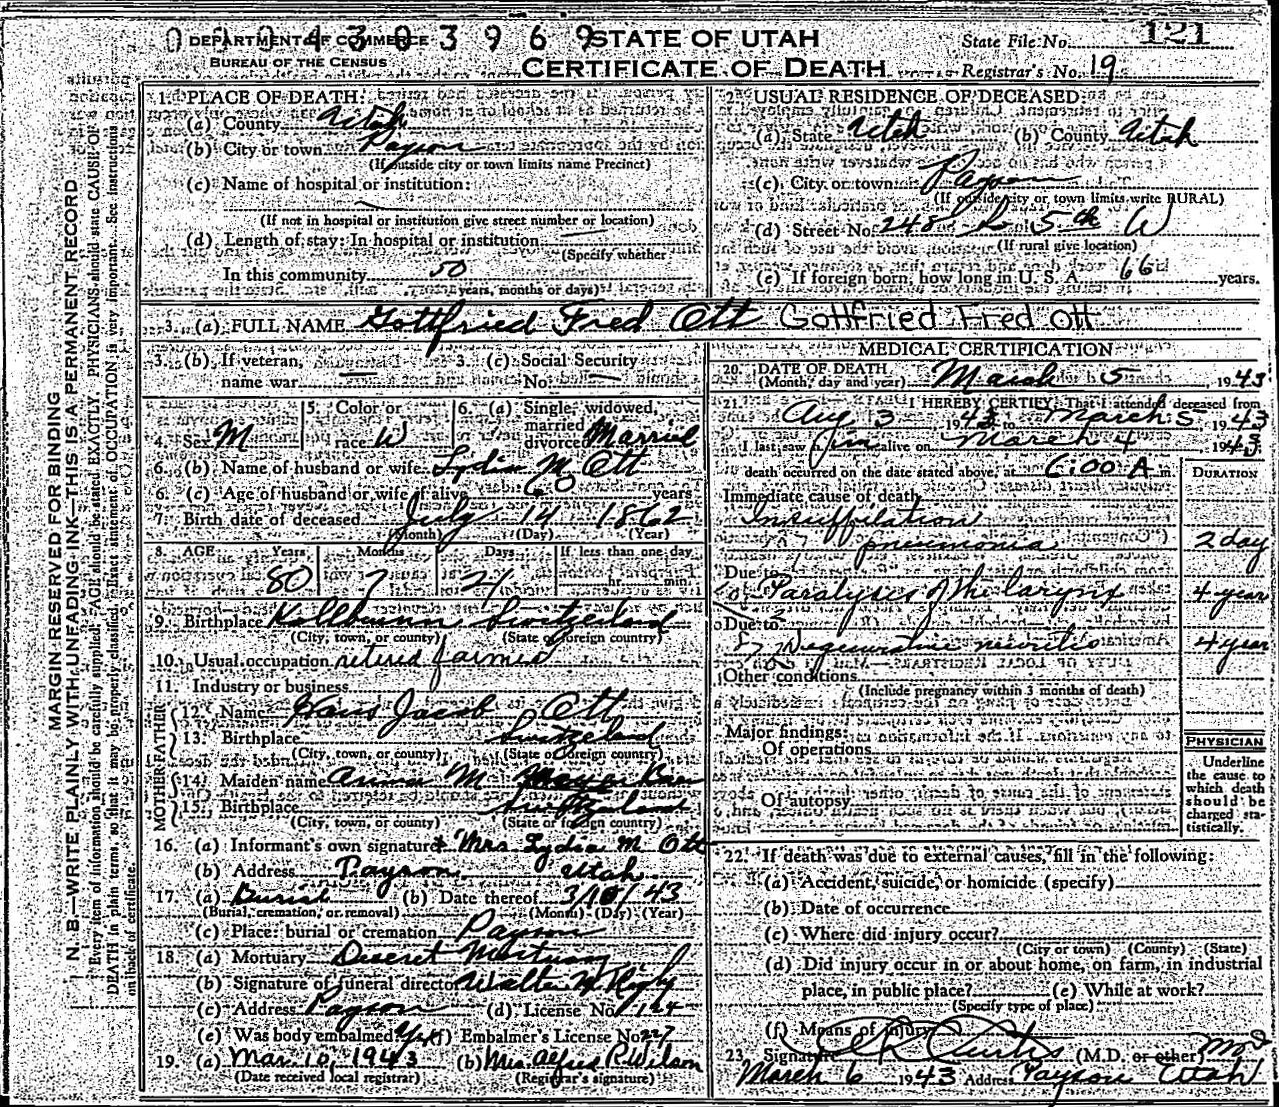 DEPARTMENT OF COMMERCE
BUREAU OF THE CENSUS
STATE OF UTAH
CERTIFICATE OF DEATH
State File No. 121
Registrar's No. 19
MARGIN RESERVED FOR BINDING
N. B.—WRITE PLAINLY WITH UNFADING INK—THIS IS A PERMANENT RECORD
Every item of information should be carefully supplied. AGE should be stated EXACTLY. PHYSICIANS should state CAUSE OF
DEATH in plain terms, so that it may be properly classified. Exact statement of OCCUPATION is very important. See instructions
on back of certificate.
1. PLACE OF DEATH:
(a) County Utah
(b) City or town Payson
(If outside city or town limits name Precinct)
(c) Name of hospital or institution:
(If not in hospital or institution give street number or location)
(d) Length of stay: In hospital or institution
(Specify whether
In this community 50
years, months or days)
USUAL RESIDENCE OF DECEASED:
(a) State Utah (b) County Utah
(c) City or town Payson
(If outside city or town limits write RURAL)
(d) Street No. 248 5th W
(If rural give location)
(e) If foreign born, how long in U. S. A. 66 years.
3. (a) FULL NAME Gottfried Fred Ott Gottfried Fred Ott
3. (b) If veteran, name war
3. (c) Social Security No.
4. Sex M
5. Color or race W
6. (a) Single, widowed, married divorced Married
6. (b) Name of husband or wife Lydia M Ott
6. (c) Age of husband or wife if alive 60 years
7. Birth date of deceased July 14 1862
(Month) (Day) (Year)
8. AGE Years Months Days If less than one day
80 7 21 hr. min.
9. Birthplace Kollbrunn Switzerland
(City, town, or county) (State or foreign country)
10. Usual occupation retired farmer
11. Industry or business
FATHER
12. Name Hans Jacob Ott
13. Birthplace Switzerland
(City, town, or county) (State or foreign country)
MOTHER
14. Maiden name Anna M
15. Birthplace Switzerland
(City, town, or county) (State or foreign country)
16. (a) Informant's own signature Mrs Lydia M Ott
(b) Address Payson Utah
17. (a) Burial (b) Date thereof 3/10/43
(Burial, cremation, or removal) (Month) (Day) (Year)
(c) Place: burial or cremation Payson
18. (a) Mortuary Deseret Mortuary
(b) Signature of funeral director Walter
(c) Address Payson (d) License No. 124
(e) Was body embalmed yes (f) Embalmer's License No. 227
19. (a) Mar. 10, 1943 (b) Mrs. Alfred P. Wilson
(Date received local registrar) (Registrar's signature)
MEDICAL CERTIFICATION
20. DATE OF DEATH
(Month, day and year) March 5, 1943
21. I HEREBY CERTIFY, That I attended deceased from
Aug 3 1943 to March 5 1943
I last saw him alive on March 4 1943
death occurred on the date stated above, at 6:00 A m.
DURATION
Immediate cause of death
Insufflation
pneumonia 2 day
Due to
Paralysis of the larynx 4 year
Due to
Degenerative neuritis 4 year
Other conditions
(Include pregnancy within 3 months of death)
Major findings:
Of operations
Of autopsy
PHYSICIAN
Underline
the cause to
which death
should be
charged sta-
tistically.
22. If death was due to external causes, fill in the following:
(a) Accident, suicide, or homicide (specify)
(b) Date of occurrence
(c) Where did injury occur?
(City or town) (County) (State)
(d) Did injury occur in or about home, on farm, in industrial
place, in public place? (e) While at work?
(Specify type of place)
(f) Means of injury
23. Signature Curtis (M.D. or other) MD
March 6 1943 Address Payson Utah